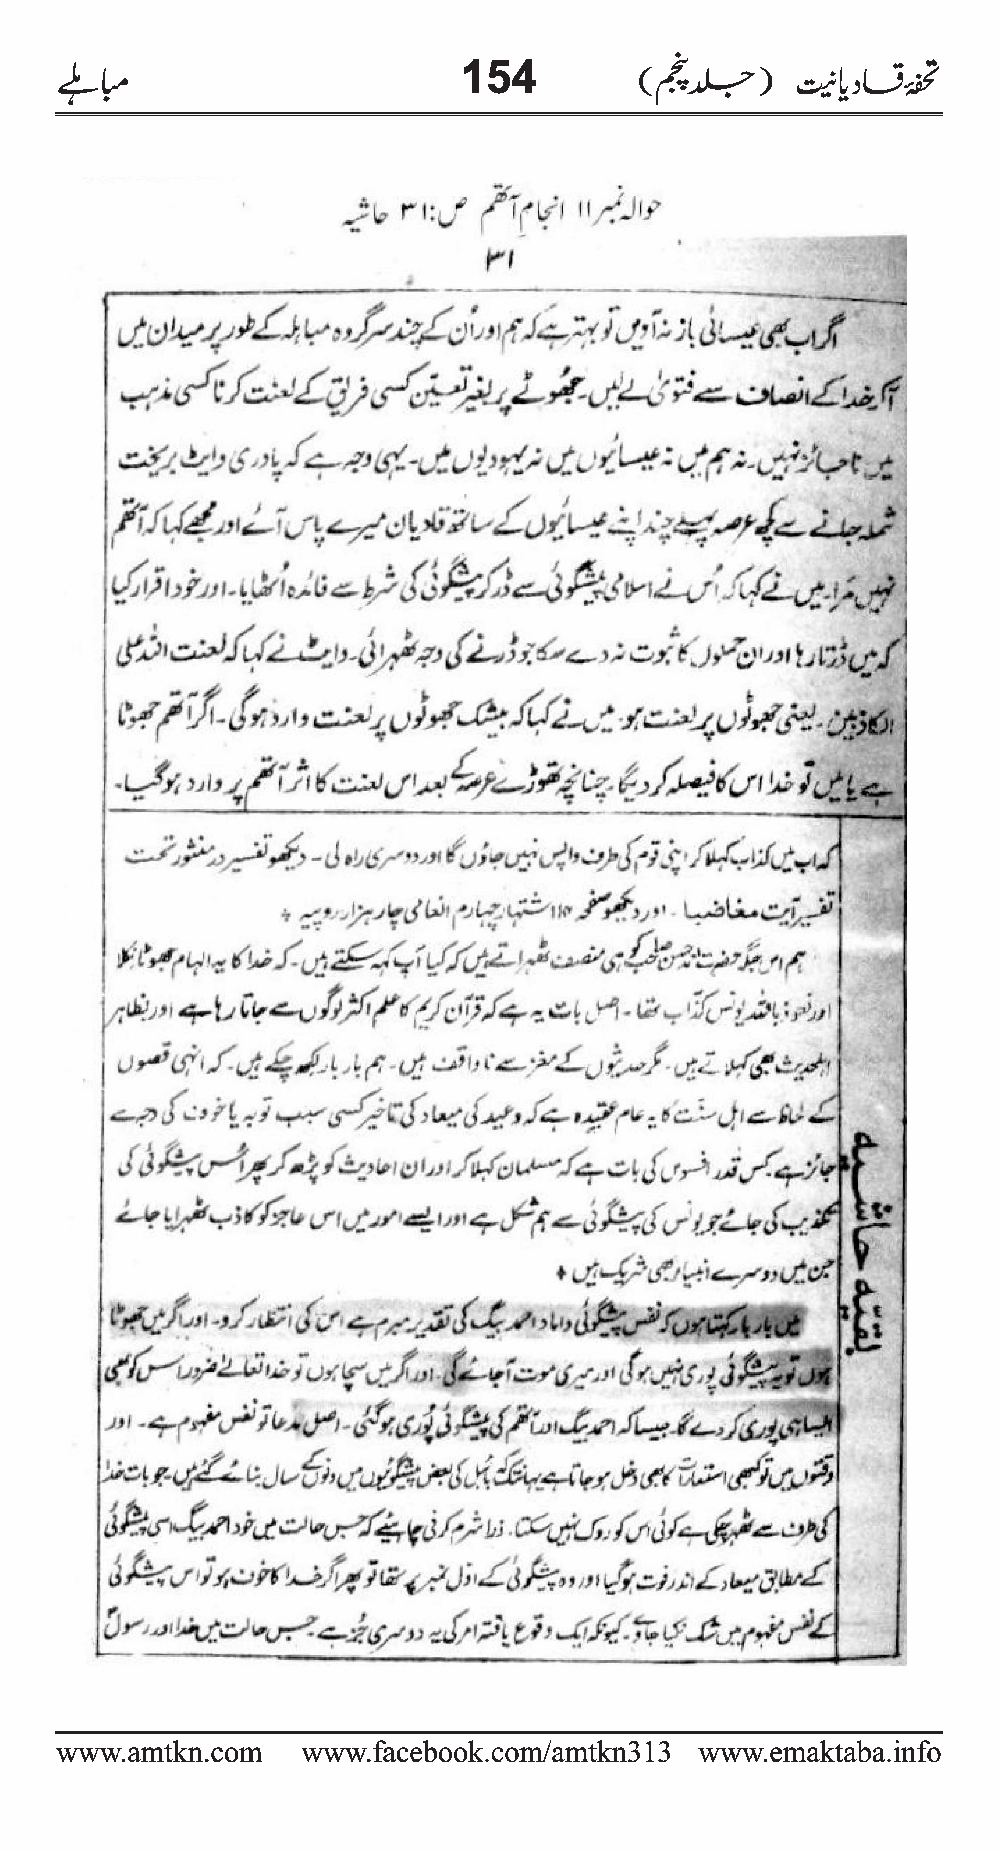 تحفۂ قادیانیت (جلد پنجم) 154 مباہلے
حوالہ نمبر ۱۱ انجام آتھم ص:۳۱ حاشیہ
۳۱
اگر اب بھی عیسائی باز نہ آویں تو بہتر ہے کہ ہم اور اُن کے چند سرگروہ مباہلہ کے طور پر میدان میں
آکر خدا کے انصاف سے فتویٰ لے لیں۔ جھوٹے پر بغیر تعیین کسی فریق کے لعنت کرنا کسی مذہب
میں ناجائز نہیں۔ نہ ہم میں نہ عیسائیوں میں نہ یہودیوں میں۔ یہی وجہ ہے کہ پادری وایٹ بریخت
شملہ جانے سے کچھ عرصہ پہلے چند اپنے عیسائیوں کے ساتھ قادیان میرے پاس آئے اور مجھے کہا کہ آتھم
نہیں مرا۔ میں نے کہا کہ اُس نے اسلامی پیشگوئی سے ڈر کر پیشگوئی کی شرط سے فائدہ اُٹھایا۔ اور خود اقرار کیا
کہ میں ڈرتا رہا اور ان حملوں کا ثبوت نہ دے سکا جو ڈرنے کی وجہ ٹھہرائی۔ وایٹ نے کہا کہ لعنت اللہ علی
الکاذبین۔ یعنی جھوٹوں پر لعنت ہو۔ میں نے کہا کہ بیشک جھوٹوں پر لعنت وارد ہوگی۔ اگر آتھم جھوٹا
ہے یا میں تو خدا اس کا فیصلہ کر دیگا۔ چنانچہ تھوڑے عرصہ کے بعد اس لعنت کا اثر آتھم پر وارد ہوگیا۔
کہ اب میں کذاب کہلا کر اپنی قوم کی طرف واپس نہیں جاؤں گا اور دوسری راہ لی۔ دیکھو تفسیر در منثور تحت
تفسیر آیت مغاضبا۔ اور دیکھو صفحہ اشتہار چہارم انعامی چار ہزار روپیہ ٭
ہم اس جگہ حضرت صاحب کو ہی منصف ٹھہراتے ہیں کہ کیا آپ کہہ سکتے ہیں۔ کہ خدا کا یہ الہام جھوٹا نکلا
اور نعوذ باللہ یونس کذّاب تھا۔ اصل بات یہ ہے کہ قرآن کریم کا علم اکثر لوگوں سے جاتا رہا ہے اور بظاہر
اہلحدیث بھی کہلاتے ہیں۔ مگر حدیثوں کے مغز سے ناواقف ہیں۔ ہم بار بار لکھ چکے ہیں۔ کہ انہی قصوں
کے لحاظ سے اہل سنّت کا یہ عام عقیدہ ہے کہ وعید کی میعاد کی تاخیر کسی سبب توبہ یا خوف کی وجہ سے
جائز ہے۔ کس قدر افسوس کی بات ہے کہ مسلمان کہلا کر اور ان احادیث کو پڑھ کر پھر اُس پیشگوئی کی
تکذیب کی جائے جو یونس کی پیشگوئی سے ہم شکل ہے اور ایسے امور میں اس عاجز کو کاذب ٹھہرایا جائے
جن میں دوسرے انبیاء بھی شریک ہیں ٭
میں بار بار کہتا ہوں کہ نفس پیشگوئی داماد احمد بیگ کی تقدیر مبرم ہے اس کی انتظار کرو۔ اور اگر میں جھوٹا
ہوں تو یہ پیشگوئی پوری نہیں ہوگی اور میری موت آجائے گی۔ اور اگر میں سچا ہوں تو خدا تعالےٰ ضرور اس کو بھی
ایسا ہی پوری کر دے گا۔ جیسا کہ احمد بیگ اور آتھم کی پیشگوئی پُوری ہوگئی۔ اصل مدعا تو نفس مفہوم ہے۔ اور
وقتوں میں تو کبھی استعارات کا بھی دخل ہو جاتا ہے یہانتک کہ بائبل کی بعض پیشگوئیوں میں دنوں کے سال بنائے گئے ہیں۔ جو بات خدا
کی طرف سے ٹھہر چکی ہے کوئی اس کو روک نہیں سکتا۔ ذرا شرم کرنی چاہئیے کہ جس حالت میں خود احمد بیگ اسی پیشگوئی
کے مطابق میعاد کے اندر فوت ہوگیا اور وہ پیشگوئی کے اول نمبر پر تھا تو پھر اگر خدا کا خوف ہو تو اس پیشگوئی
کے نفس مفہوم میں شک نہ کیا جاوے۔ کیونکہ ایک وقوع یافتہ امر کی یہ دوسری جُز ہے۔ جس حالت میں خدا اور رسول
بقیّہ حاشیہ
www.amtkn.com www.facebook.com/amtkn313 www.emaktaba.info